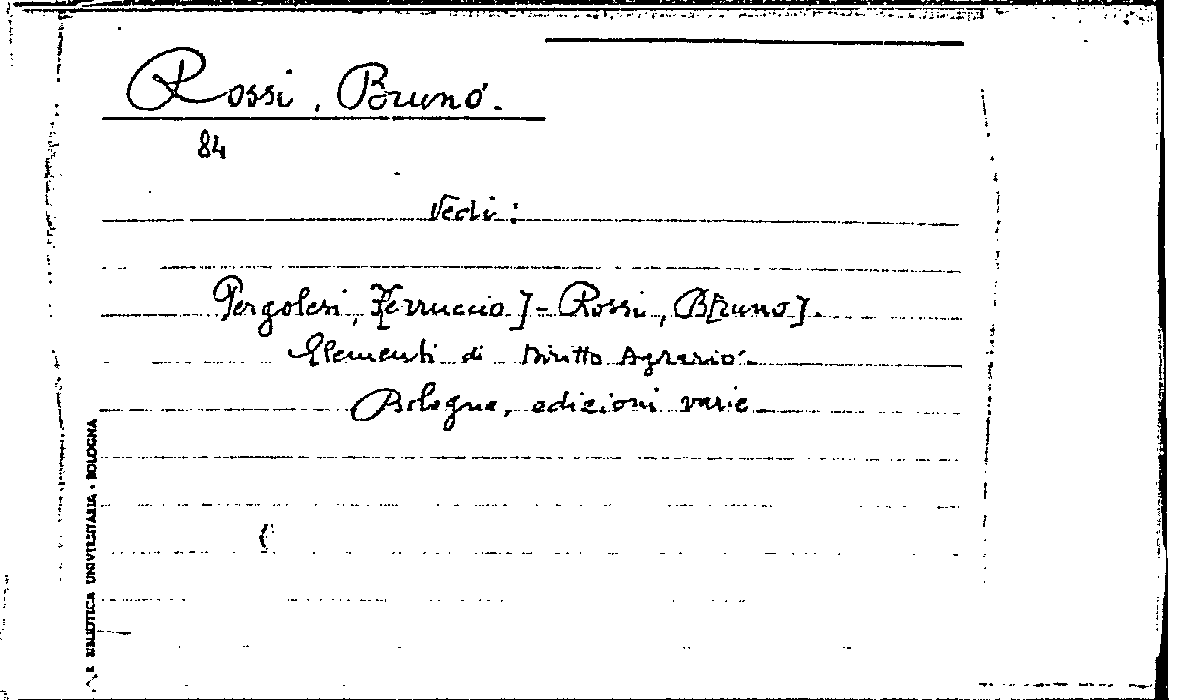 Rossi, Bruno.
84
Vedi:
Pergolesi, F[erruccio] - Rossi, B[runo].
Elementi di Diritto Agrario.
Bologna, edizioni varie
BIBLIOTECA UNIVERSITARIA - BOLOGNA